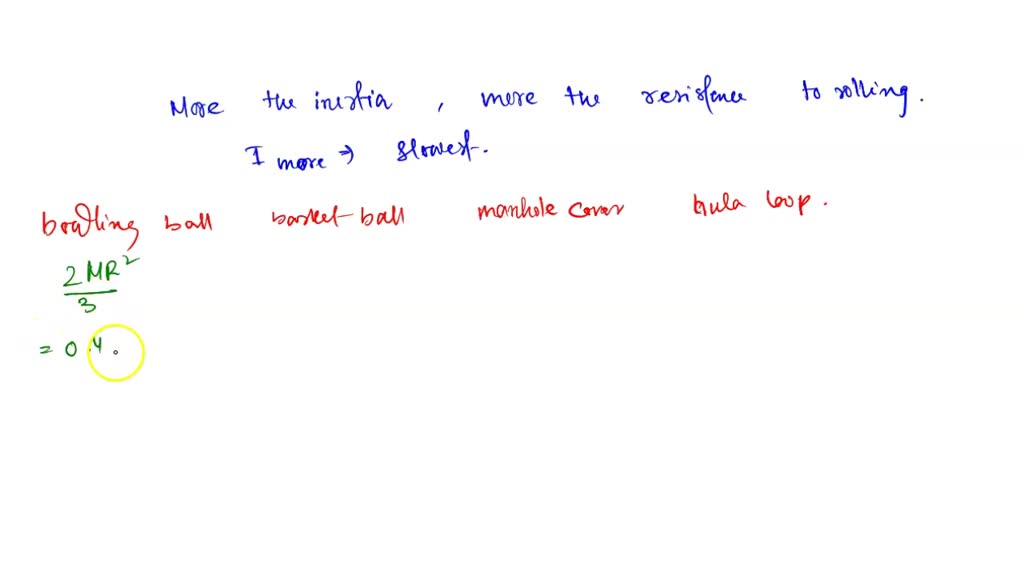 More the inertia , more the resistence to rolling.
I more → slowest.
bowling ball basket-ball manhole cover hula loop.
2MR²
3
= 0.4